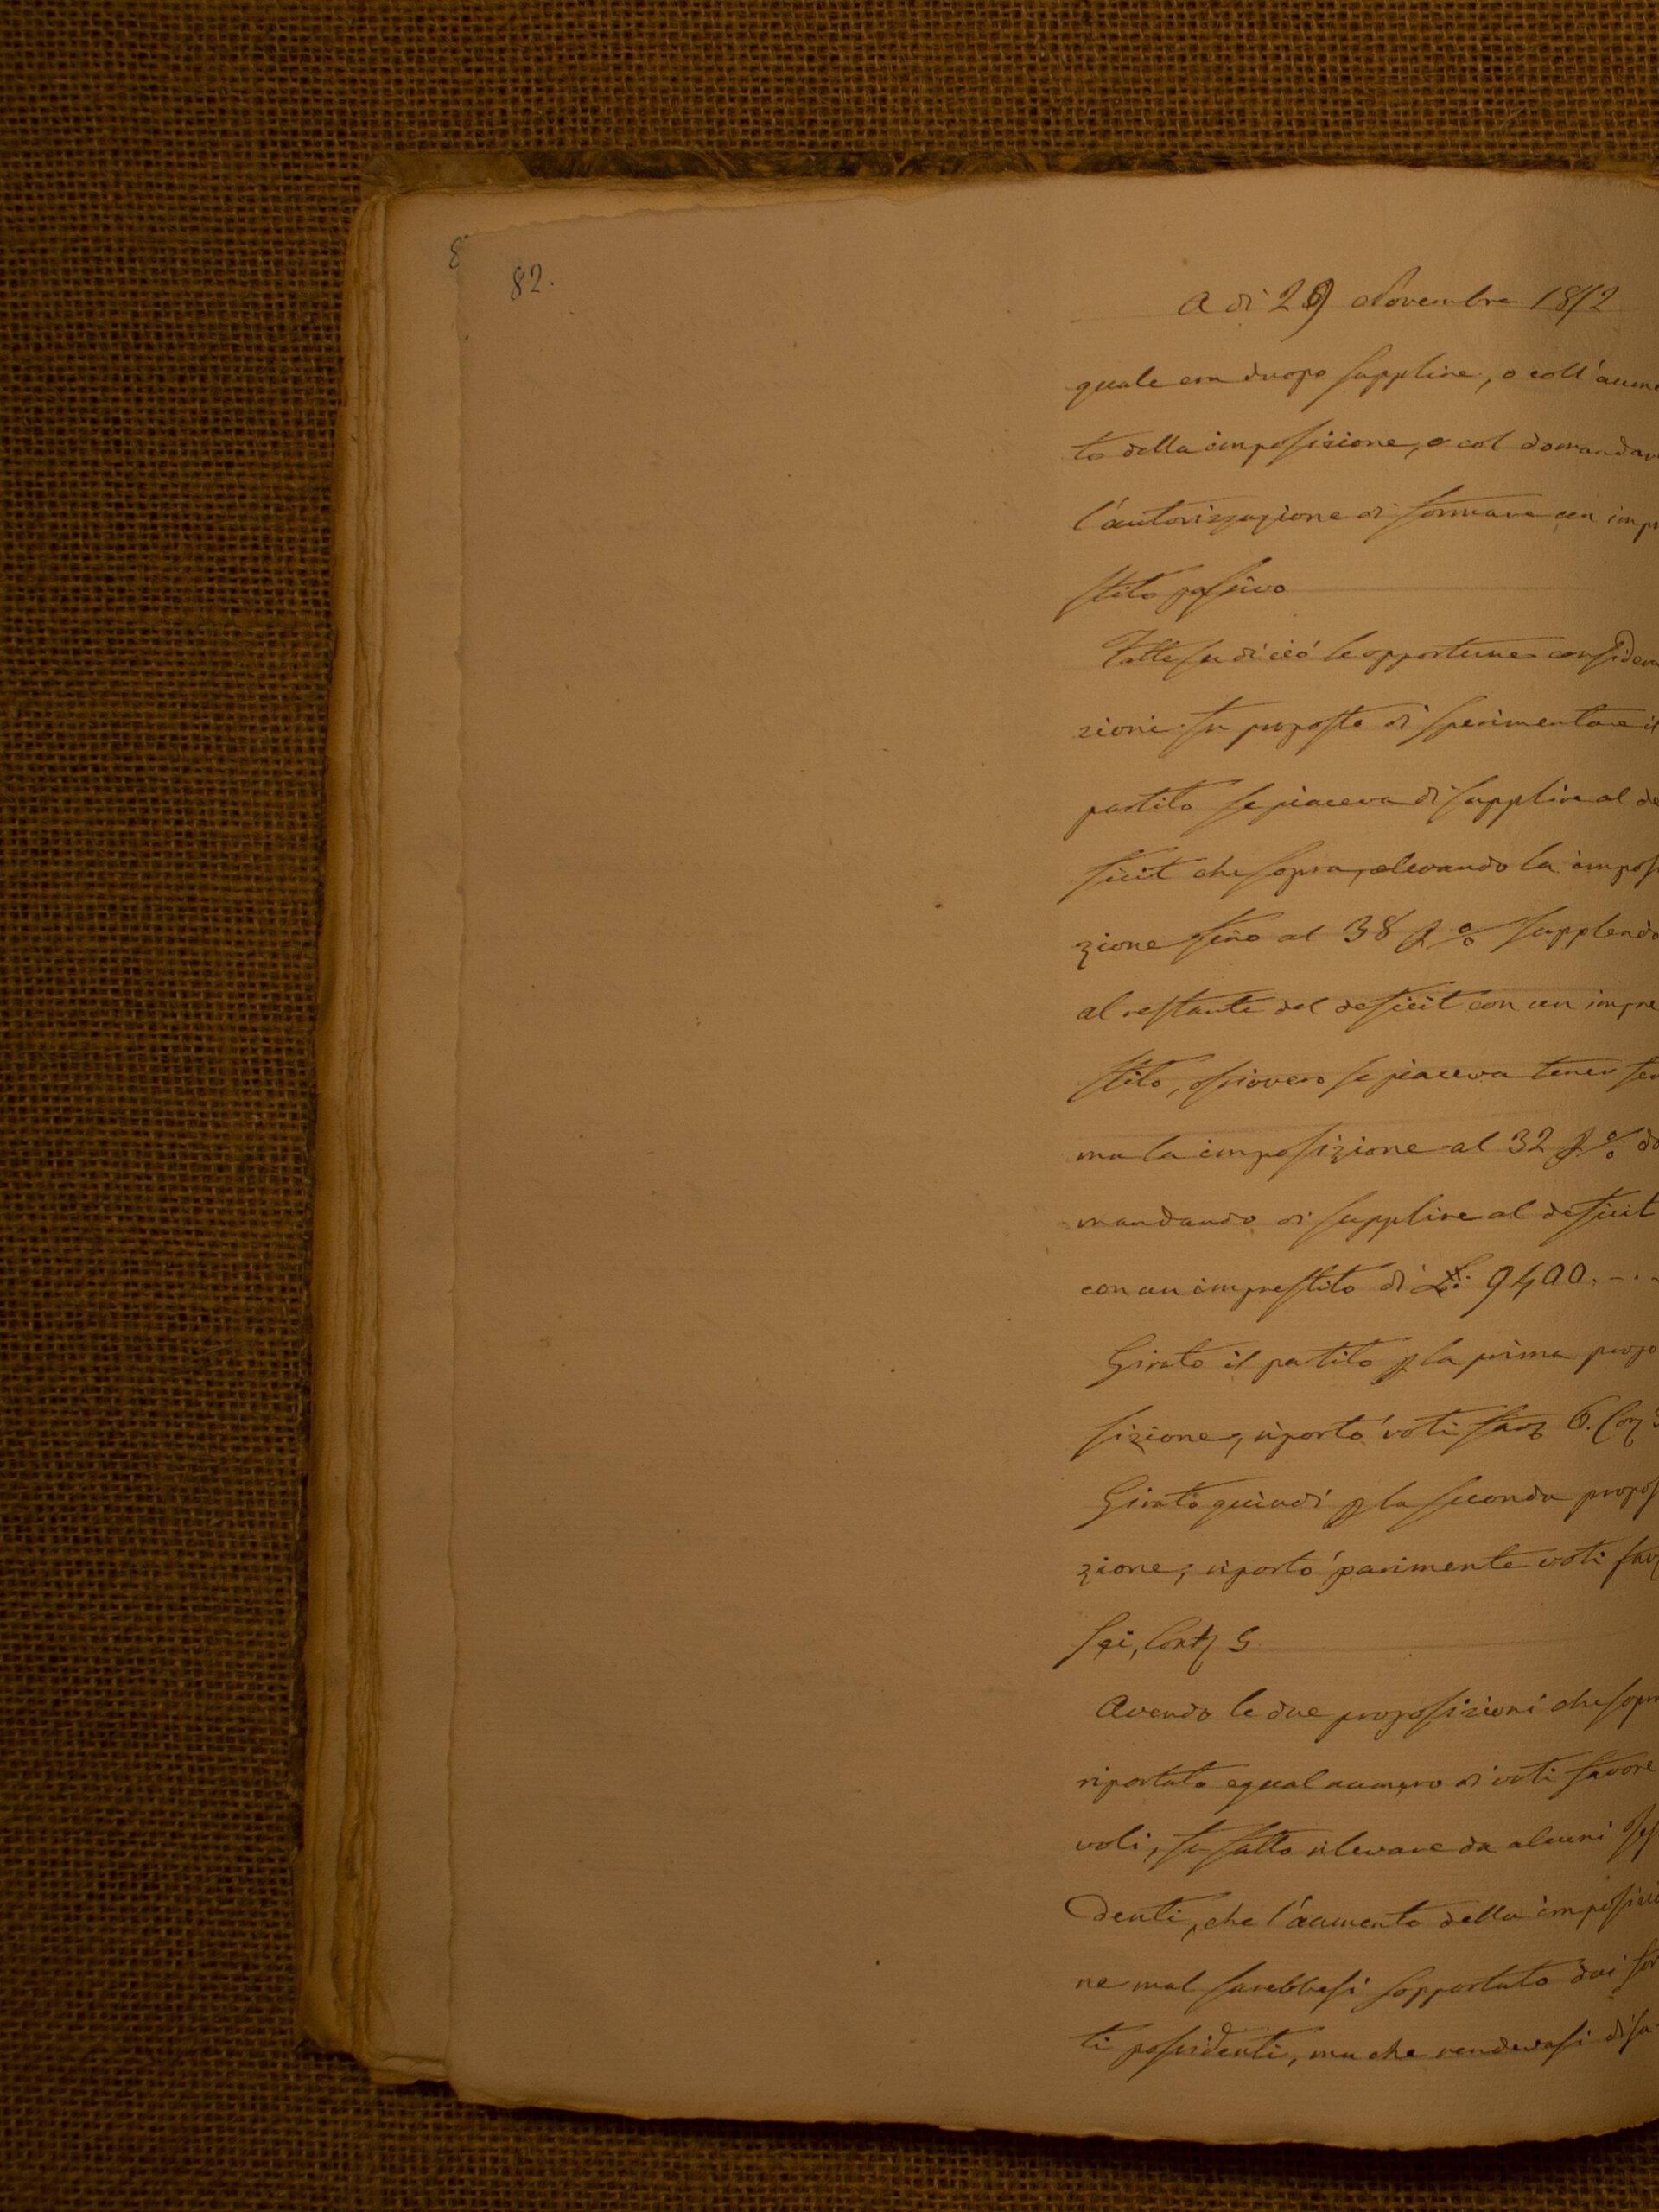 8
82.
A di 29 Novembre 1872
quale era duopo supplire, o coll'aume
to della imposizione, o col domandar
l'autorizzazione di formare un impr
stito passivo
Fatte su di ciò le opportune considera
zioni fu proposto di sperimentare il
partito se piaceva di supplire al de
ficit che sopra, elevando la imposi
zione fino al 38 p % supplendo
al restante del deficit con un impre
stito, ossivero se piaceva tener fer
ma la imposizione al 32 p % do
mandando di supplire al deficit
con un imprestito di L: 9400. -.-
Girato il partito p la prima propo
sizione, riportò voti fav 6. Con
Girato quindi p la seconda propos
zione, riportò parimente voti fav
sei, Cont 5
Avendo le due proposizioni che sopra
riportato egual numero di voti favore
voli, fu fatto rilevare da alcuni
denti, che l'aumento della imposizio
ne mal sarebbesi sopportato dai
ti possidenti, ma che rendevasi